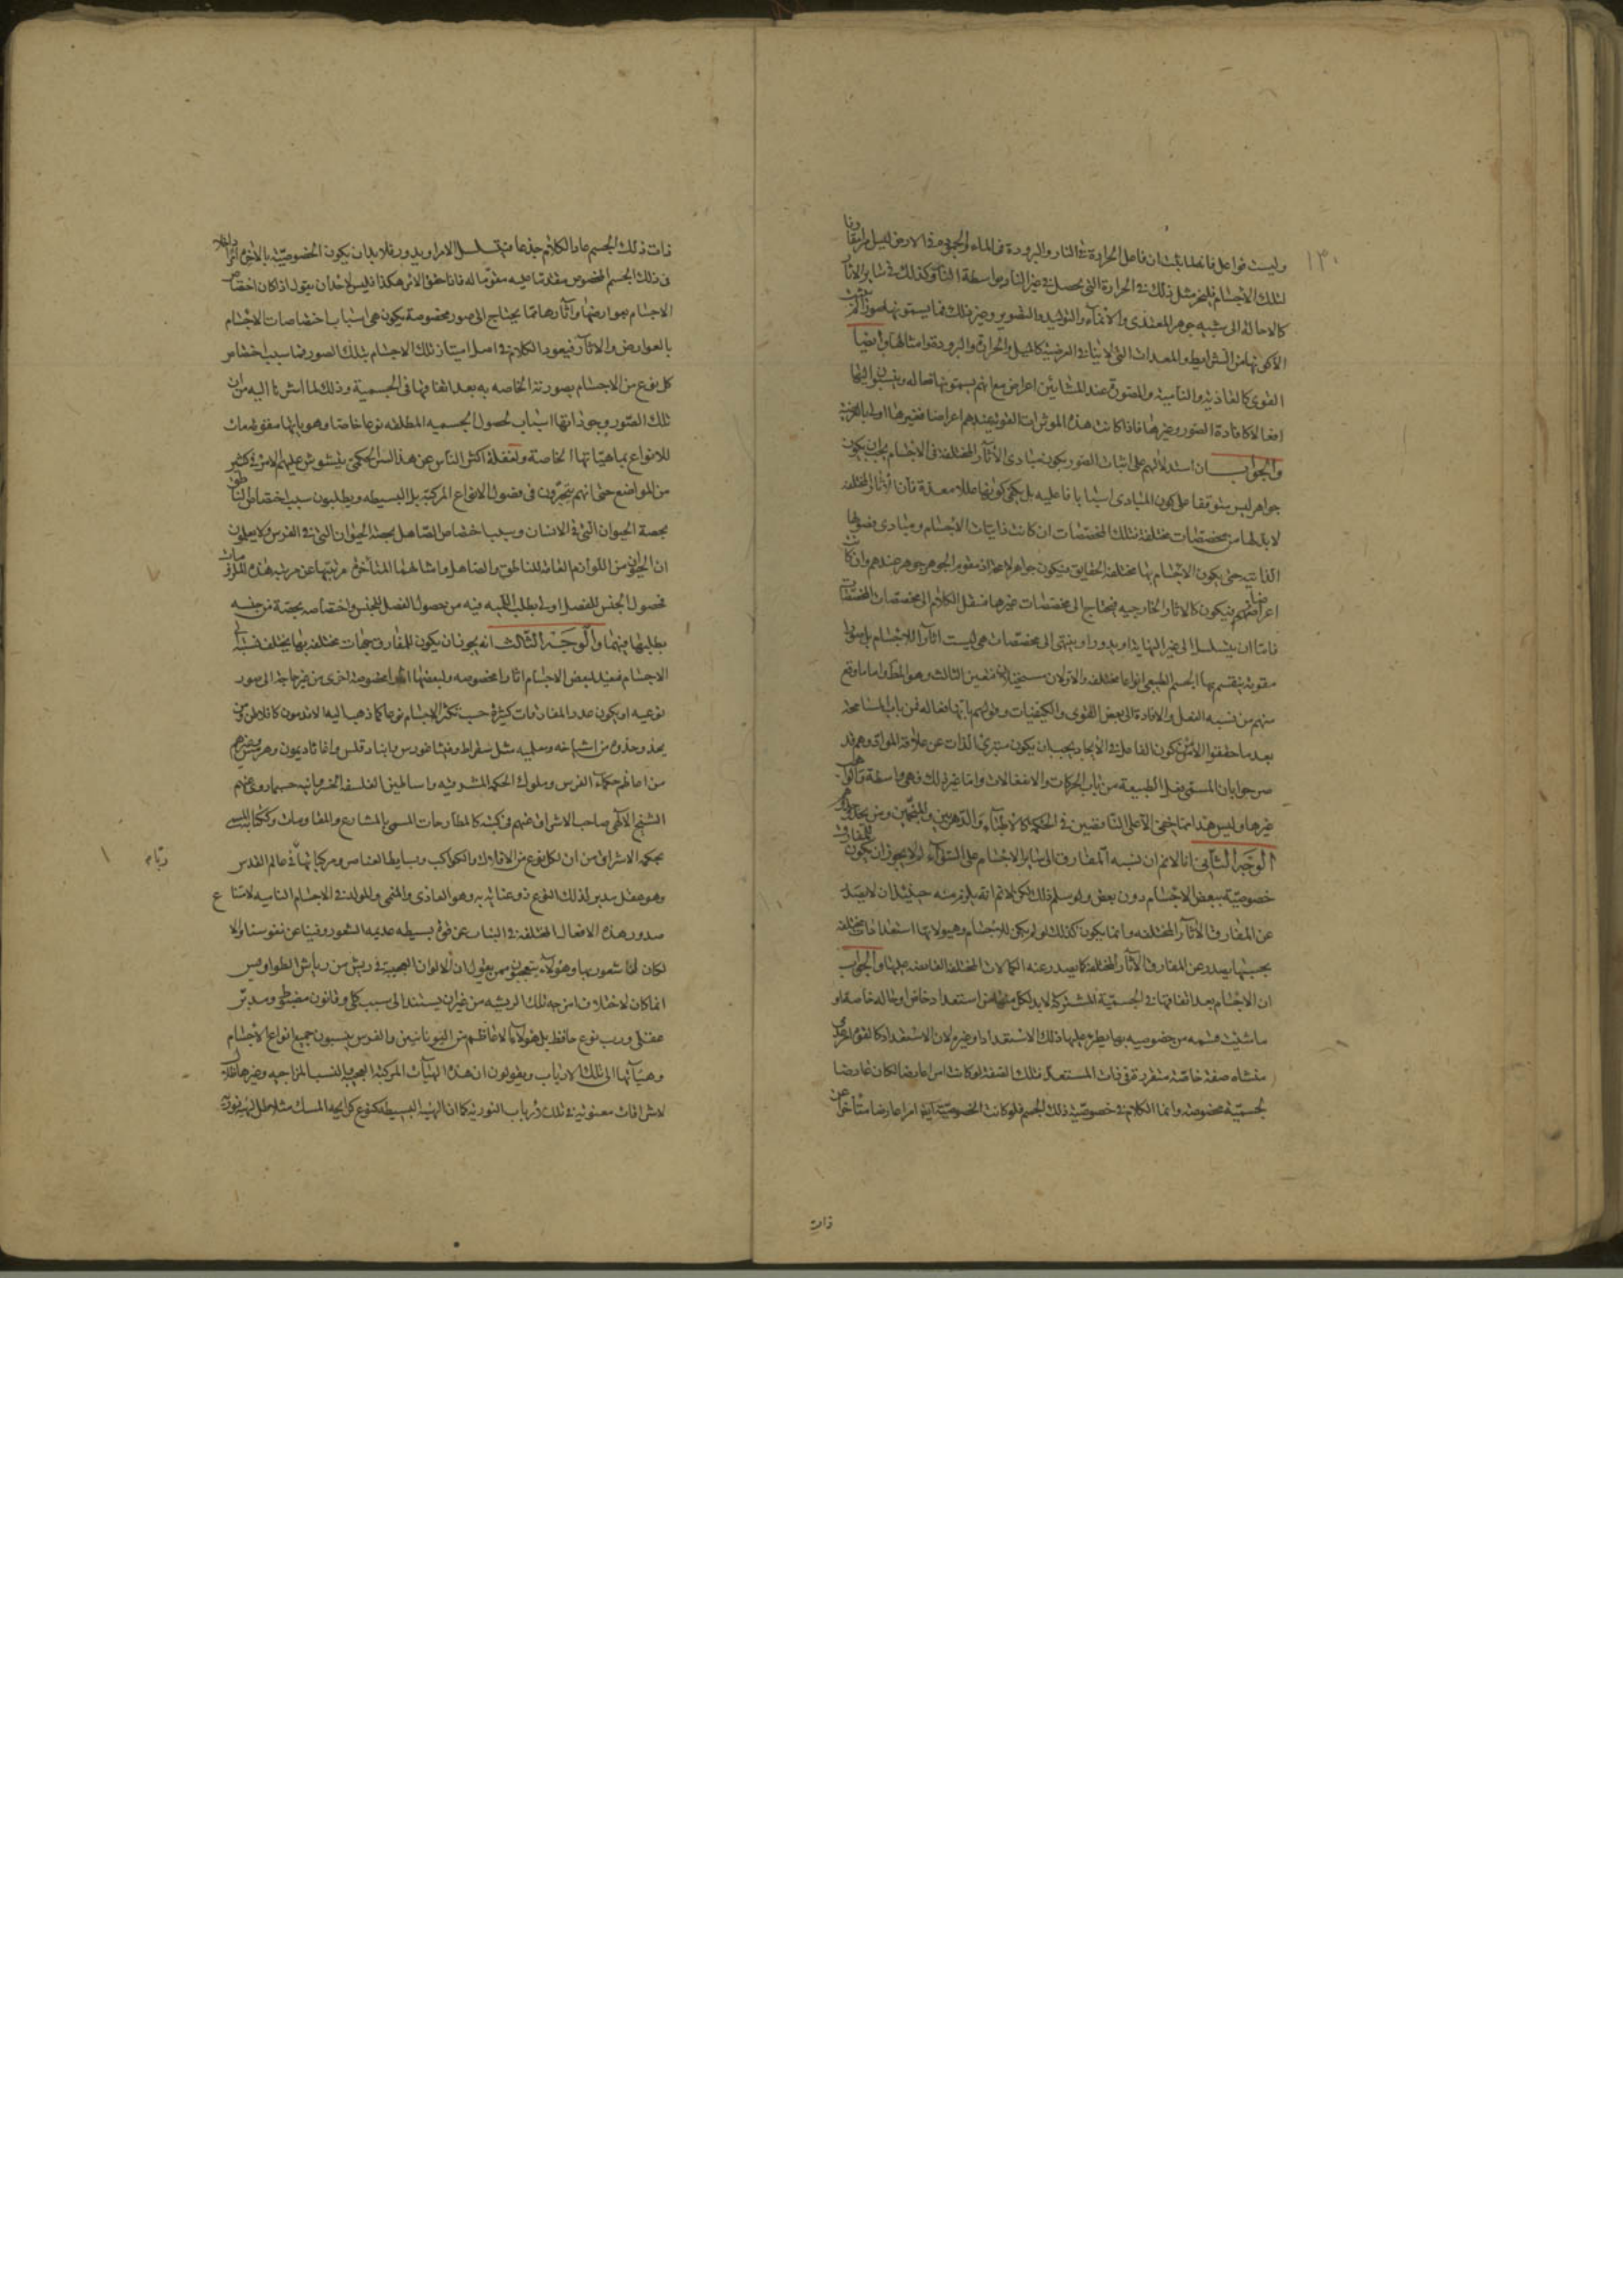 ١٣٠
وليست فواعل فا نما ما يلبث ان فاعل الحرارة فى النار والبرودة فى الماء والجمود فى الارض ليس
لتلك الاجسام فليجز مثل ذلك فى الحرارة التى يحصل فى غير النار بواسطة النار وكذلك فى ساير الاثار
كالاحالة الى شبيه جوهر المغتذى والانماء والتوليد والتصوير وغير ذلك فما يسمونها صورا
الاكونها من الشرايط والمعدات التى لا ينافى العرضية كالميل والحرارة والبرودة وامثالها وايضا
القوى كالغاذية والنامية والمصورة عند المشايين اعراض مع انهم يسمونها فعاله وينسبون اليها
افعالا كافادة الصور وغيرها فاذا كانت هذه الموثرات القوية عندهم اعراضا فغيرها اولى بالعرضية
والجواب ان استدلالهم على اثبات الصور بكون مبادى الآثار المختلفة فى الاجسام يجب ان يكون
جواهر ليس متوقفا على كون المبادى اسبابا فاعليه بل يكفى كونها عللا معدة فان الآثار المختلفه
لا بد لها من مخصصات مختلفة فتلك المخصصات ان كانت ذاتيات الاجسام ومبادى فصولها
الذاتيه حتى يكون الاجسام بها مختلفة الحقايق فيكون جواهر لا محالة اذ مقوم الجوهر جوهر عندهم وان كانت
اعراضا فيكون كالاثار الخارجيه فيحتاج الى مخصصات غيرها فننقل الكلام الى مخصصات المخصصات
فاما ان يتسلسل الى غير النهاية او يدور او ينتهى الى مخصصات هى ليست اثارا للاجسام بل صورا
مقومة ينقسم بها الجسم الطبيعى انواعا مختلفه والاولان مستحيلان فتعين الثالث وهو المط واما ما وقع
منهم من نسبه الفعل والافادة الى بعض القوى والكيفيات وقولهم بانها فعاله فمن باب المسامحه
بعد ما حققوا الامر من كون الفاعل فى الايجاد يجب ان يكون متبرئ الذات عن علاقة المواد وهم قد
صرحوا بان المستقى بفعل الطبيعة من باب الحركات والانفعالات واما غير ذلك فهى واسطة
غيرها وليس هذا مما خفى الا على الناقصين فى الحكمة كالاطباء والدهريين والمنجمين ومن يحذو
الوجه الثانى انا لا نم ان نسبه المفارق الى ساير الاجسام على السواء لم لا يجوز ان يكون
خصوصية ببعض الاجسام دون بعض ولو سلم ذلك لكن لا نم انه يلزم منه حينئذ ان لا يصدر
عن المفارق الآثار المختلفه وانما يكون كذلك لو لم يكن للاجسام وهيولاتها استعدادات مختلفه
بحسبها يصدر عن المفارق الآثار المختلفه كما يصدر عنه الكمالات المختلفه الفايضه عليها والجواب
ان الاجسام بعد اتفاقها فى الجسمية المشتركة لا بد لكل منها من استعداد خاص او حاله خاصة او
ما شئت فسمه من خصوصيه بها يطرء عليها ذلك الاستعداد او غيره لان الاستعداد كالقوة
منشاه صفة خاصة متقررة فى ذات المستعد فتلك الصفة لو كانت امرا عارضا لكان عارضا
لجسمية مخصوصة وانما الكلام فى خصوصية ذلك الجسم فلو كانت الخصوصية ايضا امرا عارضا متاخرا عن
ذات
ذات ذلك الجسم عاد الكلام جذعا فيتسلسل الامر او يدور فلا بد ان يكون الخصوصية بالاخره امرا داخلا
فى ذلك الجسم المخصوص متقدما عليه مقوما له فاذا حقق الامر هكذا فليس لاحد ان يقول اذا كان اختصاص
الاجسام بعوارضها وآثارها مما يحتاج الى صور مخصوصة يكون هى اسبابا لاختصاصات الاجسام
بالعوارض والاثار فيعود الكلام فى اصل امتياز تلك الاجسام بتلك الصور فما سبب اختصاص
كل نوع من الاجسام بصورته الخاصه به بعد اتفاقها فى الجسمية وذلك لما اشرنا اليه من ان
تلك الصور وجوداتها اسباب لحصول الجسميه المطلقه نوعا خاصا وهوياتها مقومات
للانواع بماهياتها الخاصة ولغفلة اكثر الناس عن هذا السر الحكمى يتشوش عليهم الامر فى كثير
من المواضع حتى انهم يتحيرون فى فصول الانواع المركبة بل البسيطه ويطلبون سبب اختصاص الناطق
بحصة الحيوان التى فى الانسان وسبب اختصاص الصاهل بحصة الحيوان التى فى الفرس ولا يعلمون
ان الحيوان من اللوازم العامة للناطق والصاهل وامثالهما المتأخرة مرتبتها عن مرتبه هذه الملزومات
فحصول الجنس للفصل اولى بطلب اللمية فيه من حصول الفصل للجنس واختصاصه بحصة من جنسه
يطلبها فيهما والوجه الثالث انه يجوز ان يكون للمفارق جهات مختلفه بها يختلف نسبته الى
الاجسام فيفيد لبعض الاجسام اثارا مخصوصه ولبعضها اثارا مخصوصة اخرى من غير حاجة الى صور
نوعيه او يكون عدد المفارقات كثيرة حسب تكثر الاجسام نوعا كما ذهب اليه الاقدمون كافلاطن ومن
يحذو حذوه من اشياخه ومعلميه مثل سقراط وفيثاغورس وانباذقلس واغاثاذيمون وهرمس وغيرهم
من اعاظم حكماء الفرس وملوك الحكمه المشرقيه واساطين الفلسفه الخسروانيه حسبما روى عنهم
الشيخ الآلهى صاحب الاشراق عنهم فى كتبه كالمطارحات المسمى بالمشارع والمقاومات وككتابه المسمى
بحكمه الاشراق من ان لكل نوع من الافلاك والكواكب وبسايط العناصر ومركباتها ربا فى عالم القدس
وهو عقل مدبر لذلك النوع ذو عناية به وهو الغاذى والمنمى والمولد فى الاجسام الناميه لامتناع
صدور هذه الافعال المختلفه فى النبات عن قوة بسيطه عديمه الشعور وفينا عن نفوسنا والا
لكان لنا شعور بها وهؤلاء يتعجبون ممن يقول ان الالوان العجيبة فى ريش من رياش الطواويس
انما كان لاختلاف امزجه تلك الريشه من غير ان يستند الى سبب كلى وقانون مضبوط ومدبر
عقلى ورب نوع حافظ بل هؤلاء الاعاظم من اليونانيين والفرس ينسبون جميع انواع الاجسام
وهيآتها الى تلك الارباب ويقولون ان هذه الهيآت المركبة العجيبة والنسب المزاجيه وغيرها ظلال
لاشراقات معنوية فى تلك الارباب النورية كما ان الهيئة البسيطه لنوع كرايحه المسك مثلا ظل لهيئة نورية